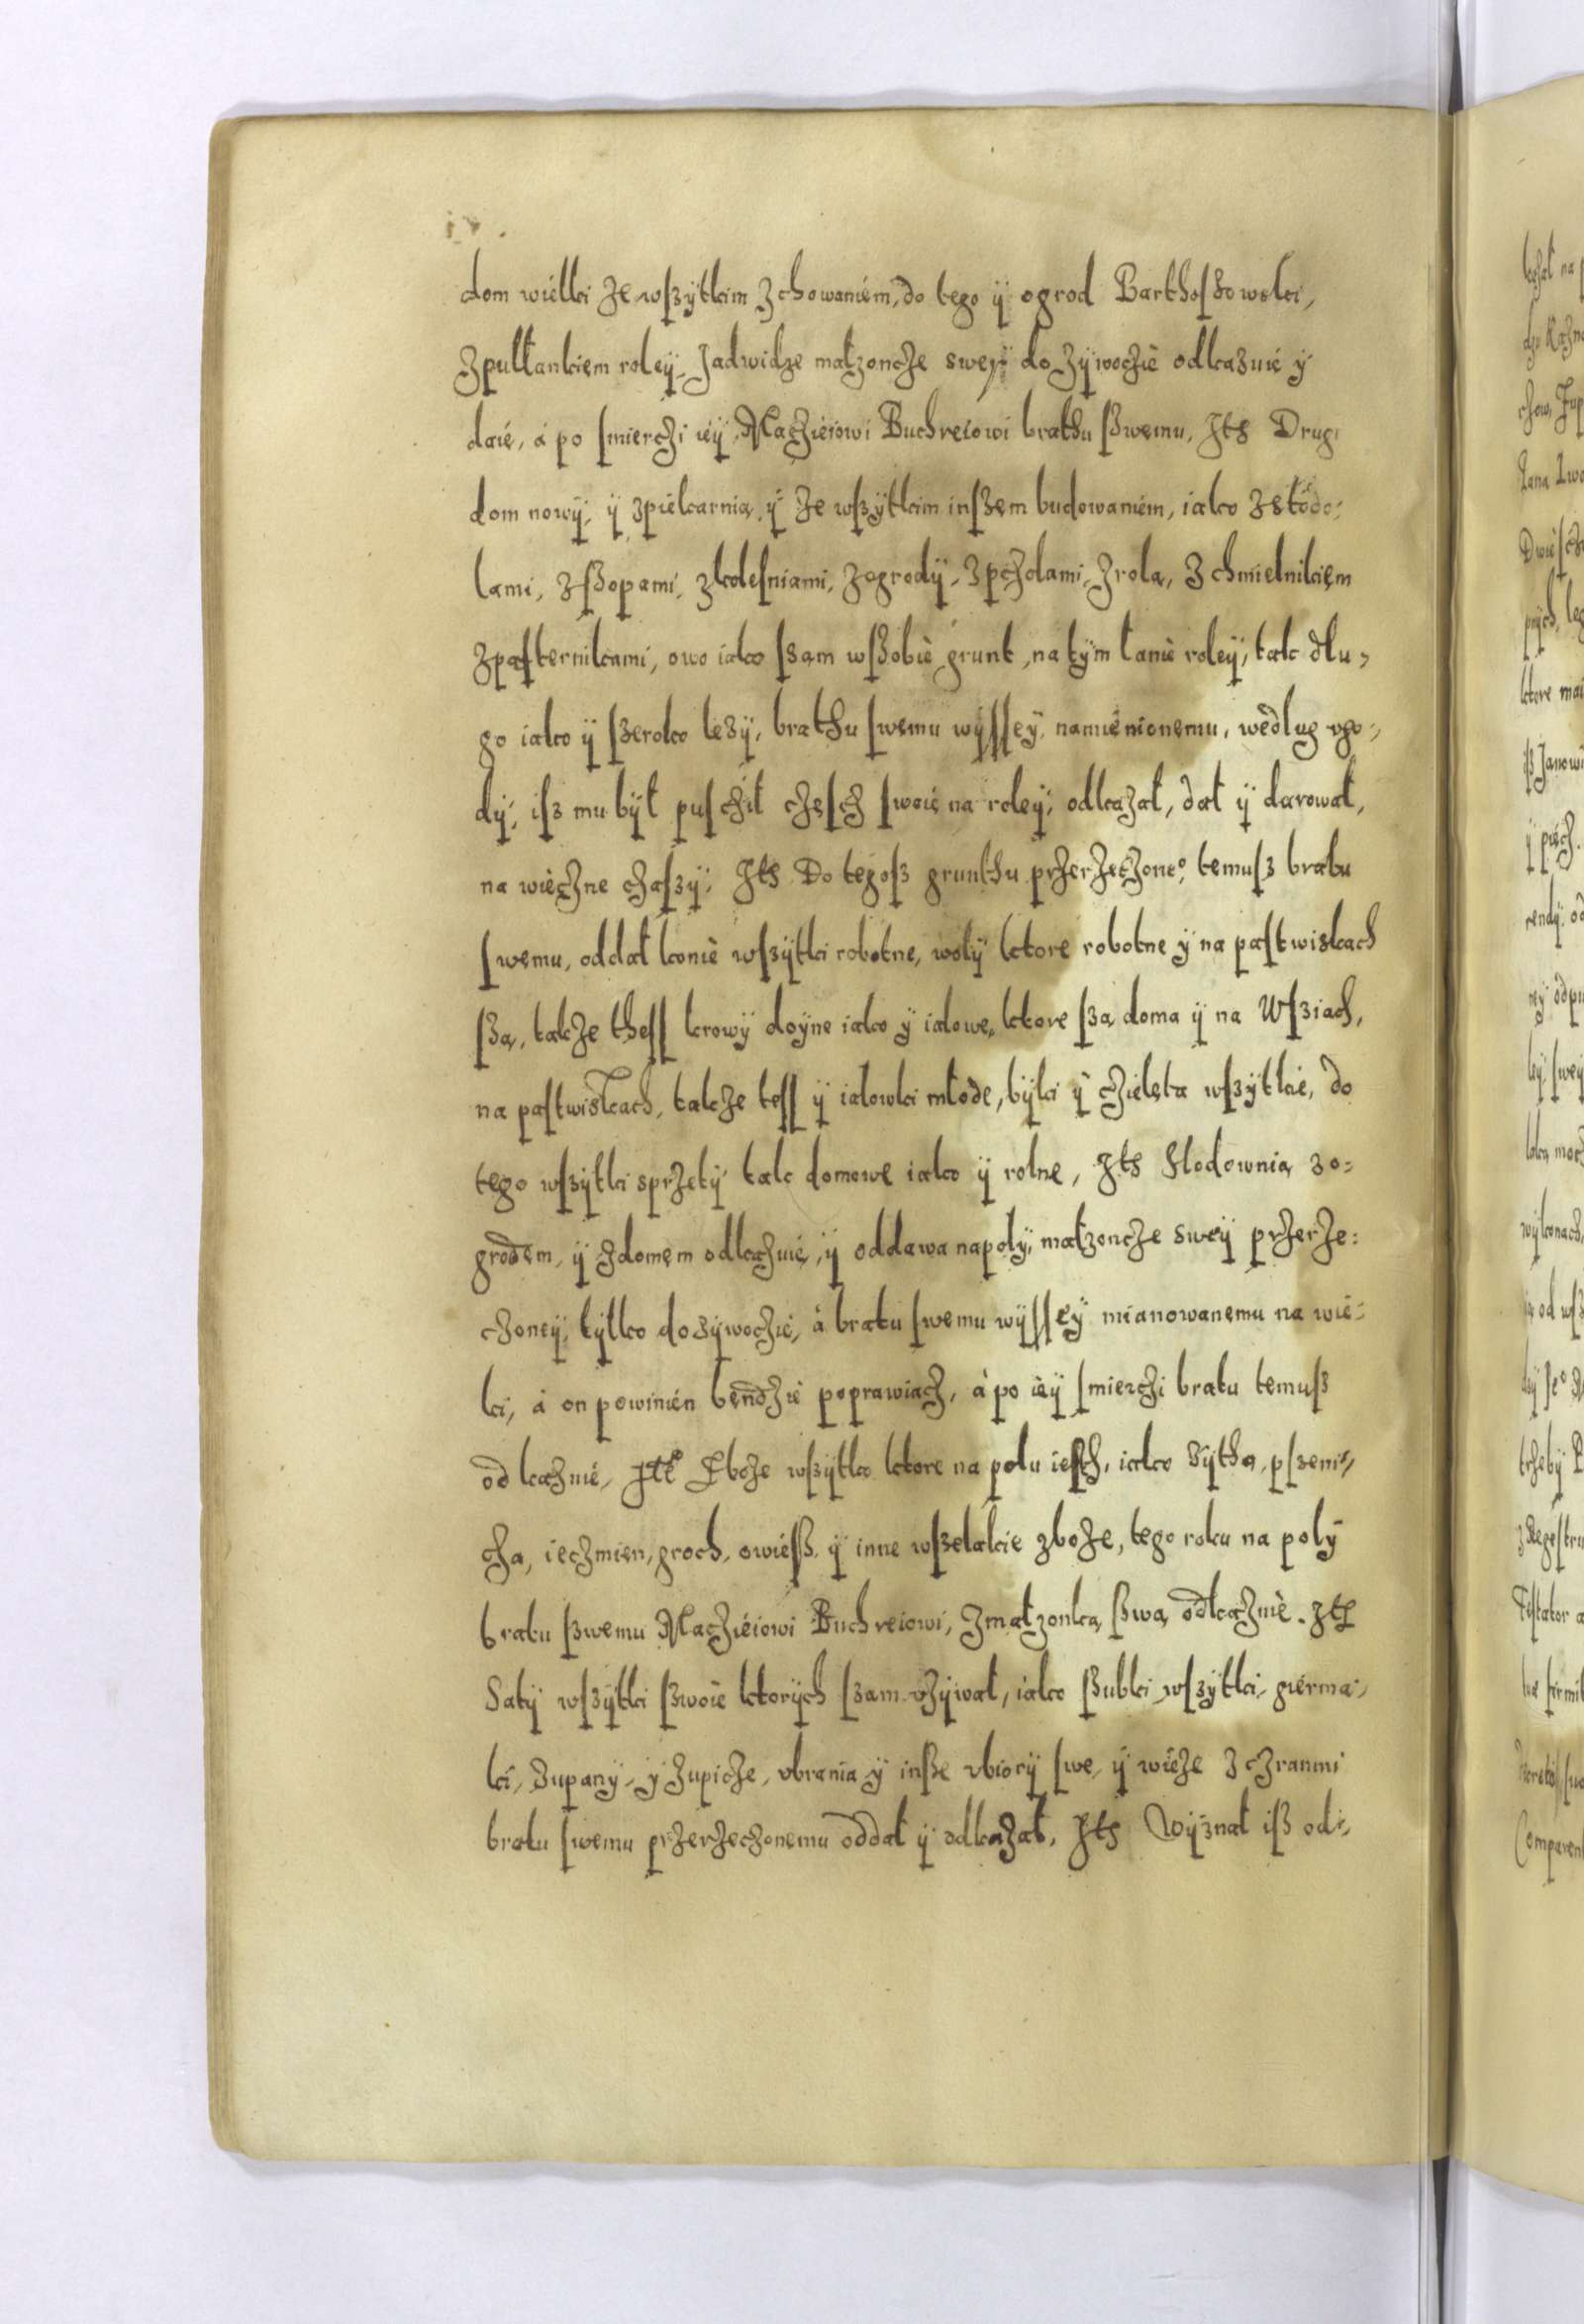 dom wielki ze wſzÿtkim zchowaniem, do tego ÿ ogrod Barthoſzowski,
zpułłankiem roleÿ, Jadwidze małzoncze sweÿ do zÿwoczie odkazuie ÿ
daie, á po ſmierczi ieÿ, Macżieiowi Buchreiowi brathu ſzwemu, Its Drugi
dom nowÿ, ÿ zpiekarnią, ÿ ze wſzÿtkim inſzem budowaniem, iako zstodo:
lami, zſzopami, zkoleſniami, zogrodÿ, zpczolami, zrolą, zchmielnikiem
zpaſternikami, owo iako ſzam wſzobie grunt, na tÿm łanie roleÿ, tak dłu,
go iako ÿ ſzeroko lezÿ, brathu ſwemu wÿſſeÿ namienionemu, wedlug vgo,
dÿ, iſz mu bÿł puſcził cżęſcż ſwoię na roleÿ, odkazał, dał ÿ darowal,
na wieczne cżaſzÿ, Its Do tegoſz grunthu przerzeczone⁰ temuſz bratu
ſwemu, oddał konie wſzÿtki robotne, wolÿ ktore robotne ÿ na paſtwiskach
ſzą, takze theſſ krowÿ doÿne iako ÿ ialowe, ktore ſzą doma ÿ na Wſziach,
na paſtwiskach, takze teſſ ÿ ialowki młode, bÿki ÿ cżielęta wſzÿtkie, do
tego wſzÿtki sprzetÿ tak domowe iako ÿ rolne, Its Slodownią zo:
grodem, ÿ zdomem odkazuie, ÿ oddawa napolÿ, małzoncze sweÿ przerze:
czoneÿ, tÿlko dozÿwoczie, á bratu ſwemu wÿſſeÿ mianowanemu na wie:
ki, á on powinien bendzie poprawiacz, á po ieÿ ſmierczi bratu temuſz
odkazuie, Ite Zboze wſzÿtko ktore na polu ieſth, iako zÿtha, pſzeni,
cża, ięczmien, groch, owieſz, ÿ inne wſzelakie zboże, tego roku na polÿ
bratu ſzwemu Macżieiowi Buchreiowi, zmałzonką ſzwą, odkazuie. Its
Satÿ wſzÿtki ſzwoie ktorÿch ſzam vżÿwal, iako ſzubki wſzÿtki, gierma,
ki, zupanÿ, ÿ zupicze, vbrania ÿ inſze vbiorÿ ſwe, ÿ wieze zczranmi
bratu ſwemu przerzeczonemu oddał ÿ odkazał, Its Wÿznał iſz od,